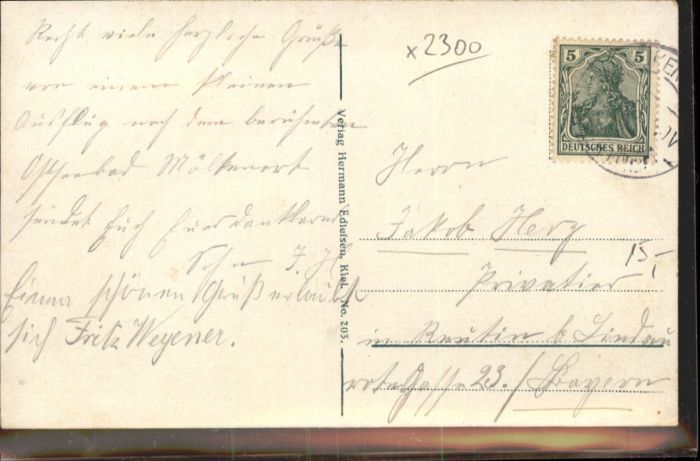 Recht viele herzliche Grüße
von einem kleinen
Ausflug nach dem berühmten
Ostseebad Möltenort
sendet Euch Euer dankbarer
Sohn J. H.
Einen schönen Gruß erlaubt
sich Fritz Wegener.
Verlag Hermann Edlefsen, Kiel. No. 203.
x 2300
5 5
DEUTSCHES REICH
Herrn
Jakob Herz
15,-
Privatier
in Reutin b. Lindau
rote Gasse 23. / Bayern